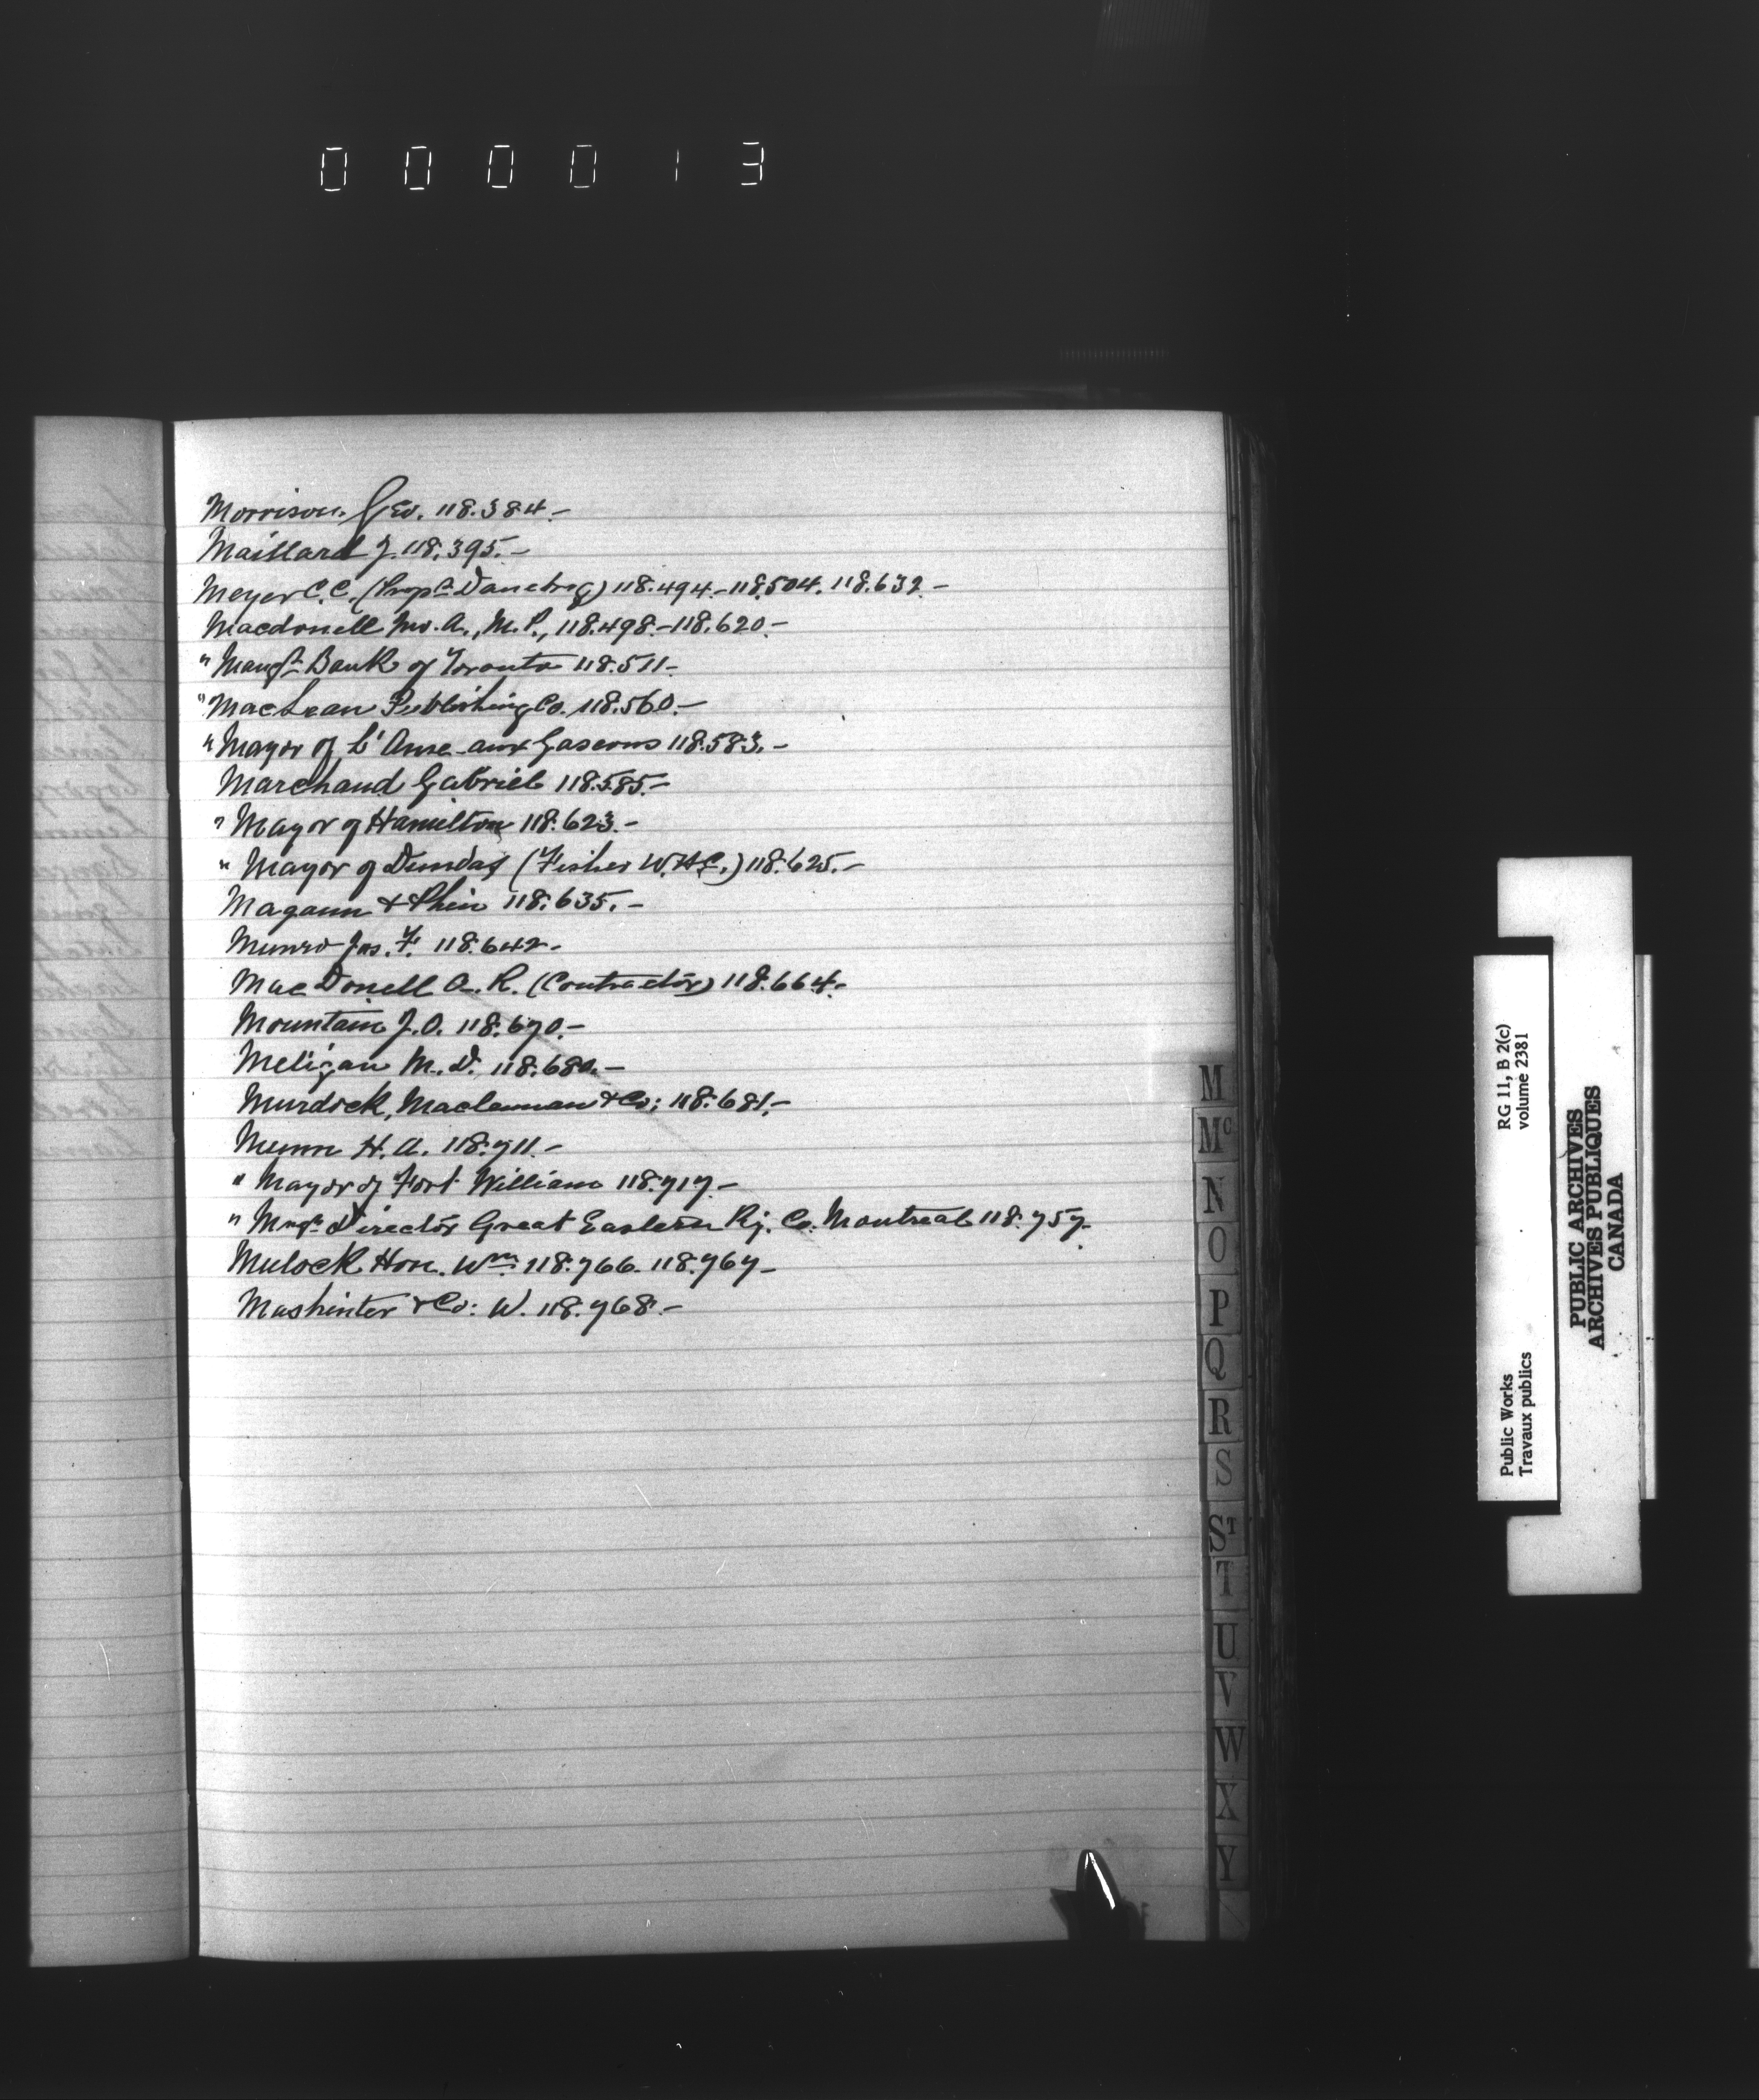 000013
Morrison. Geo. 118.384.-
Maillard J. 118.395.-
Meyer C.C. (Propr Danebrog) 118.494.-118.504. 118.632.-
Macdonell Jno. A., M.P., 118.498.-118.620.-
" Mangr Bank of Toronto 118.511.-
" MacLean Publishing Co. 118.560.-
" Mayor of L'Anse-aux Gascons 118.583.-
Marchand Gabriel 118.585.-
" Mayor of Hamilton 118.623.-
" Mayor of Dundas (Fisher W.H.C.) 118.625.-
Magann & Phin 118.635.-
Munro Jas. F. 118.642-
MacDonell A. R. (Contractor) 118.664.-
Mountain J.O. 118.670.-
Meligan M. D. 118.680.-
Murdock, Maclennan & Co: 118.681.-
Munn H. A. 118.711.-
" Mayor of Fort William 118.717.-
" Mngr Director Great Eastern Ry. Co. Montreal 118.757.-
Mulock Hon. Wm. 118.766. 118.767-
Mashinter & Co: W. 118.768.-
M
Mc
N
O
P
Q
R
S
ST
T
U
V
W
X
Y
Public Works
Travaux publics
RG 11, B 2(c)
volume 2381
PUBLIC ARCHIVES
ARCHIVES PUBLIQUES
CANADA